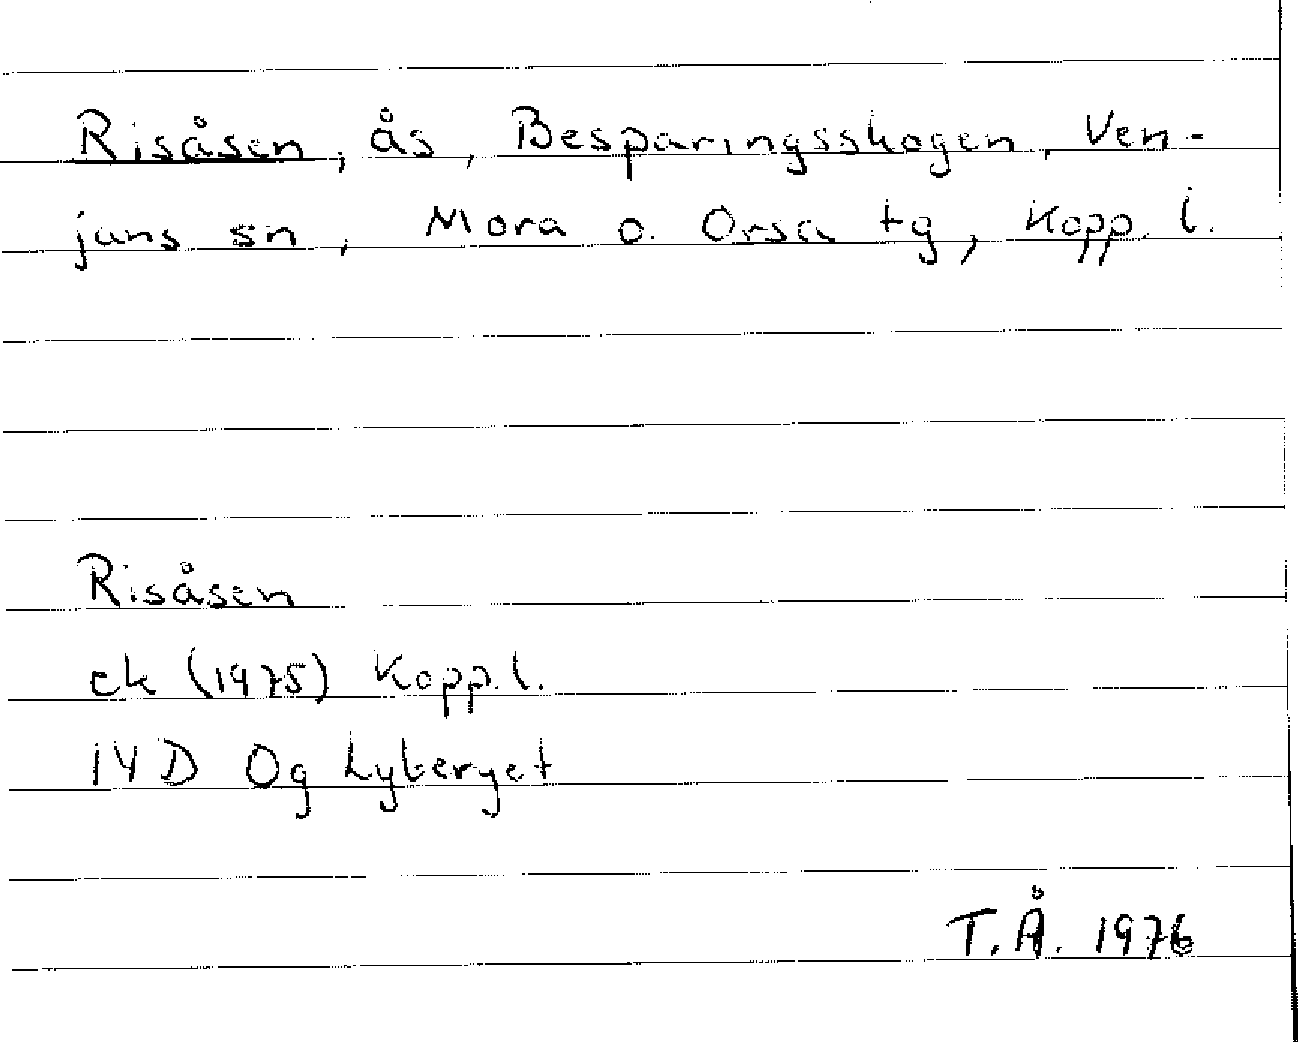 Risåsen, ås, Besparingsskogen, Ven-
jans sn, Mora o. Orsa tg, Kopp. l.
Risåsen
ek (1975) Kopp. l.
14D Og Lyberget
T.Å. 1976